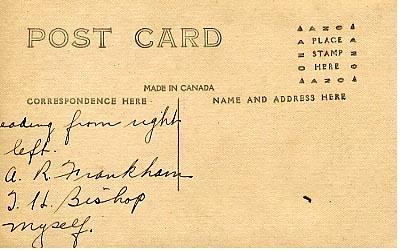 POST CARD
AZO
PLACE
STAMP
HERE
AZO
MADE IN CANADA
CORRESPONDENCE HERE
NAME AND ADDRESS HERE
eading from right
left.
A. R. Frankham
J. H. Bishop
myself.